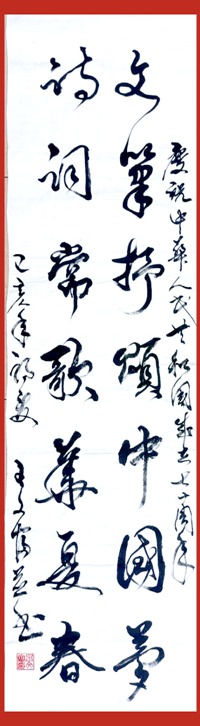 慶祝中華人民共和國成立七十周年
文筆抒頌中國夢
詩詞常歌華夏春
己亥年初夏